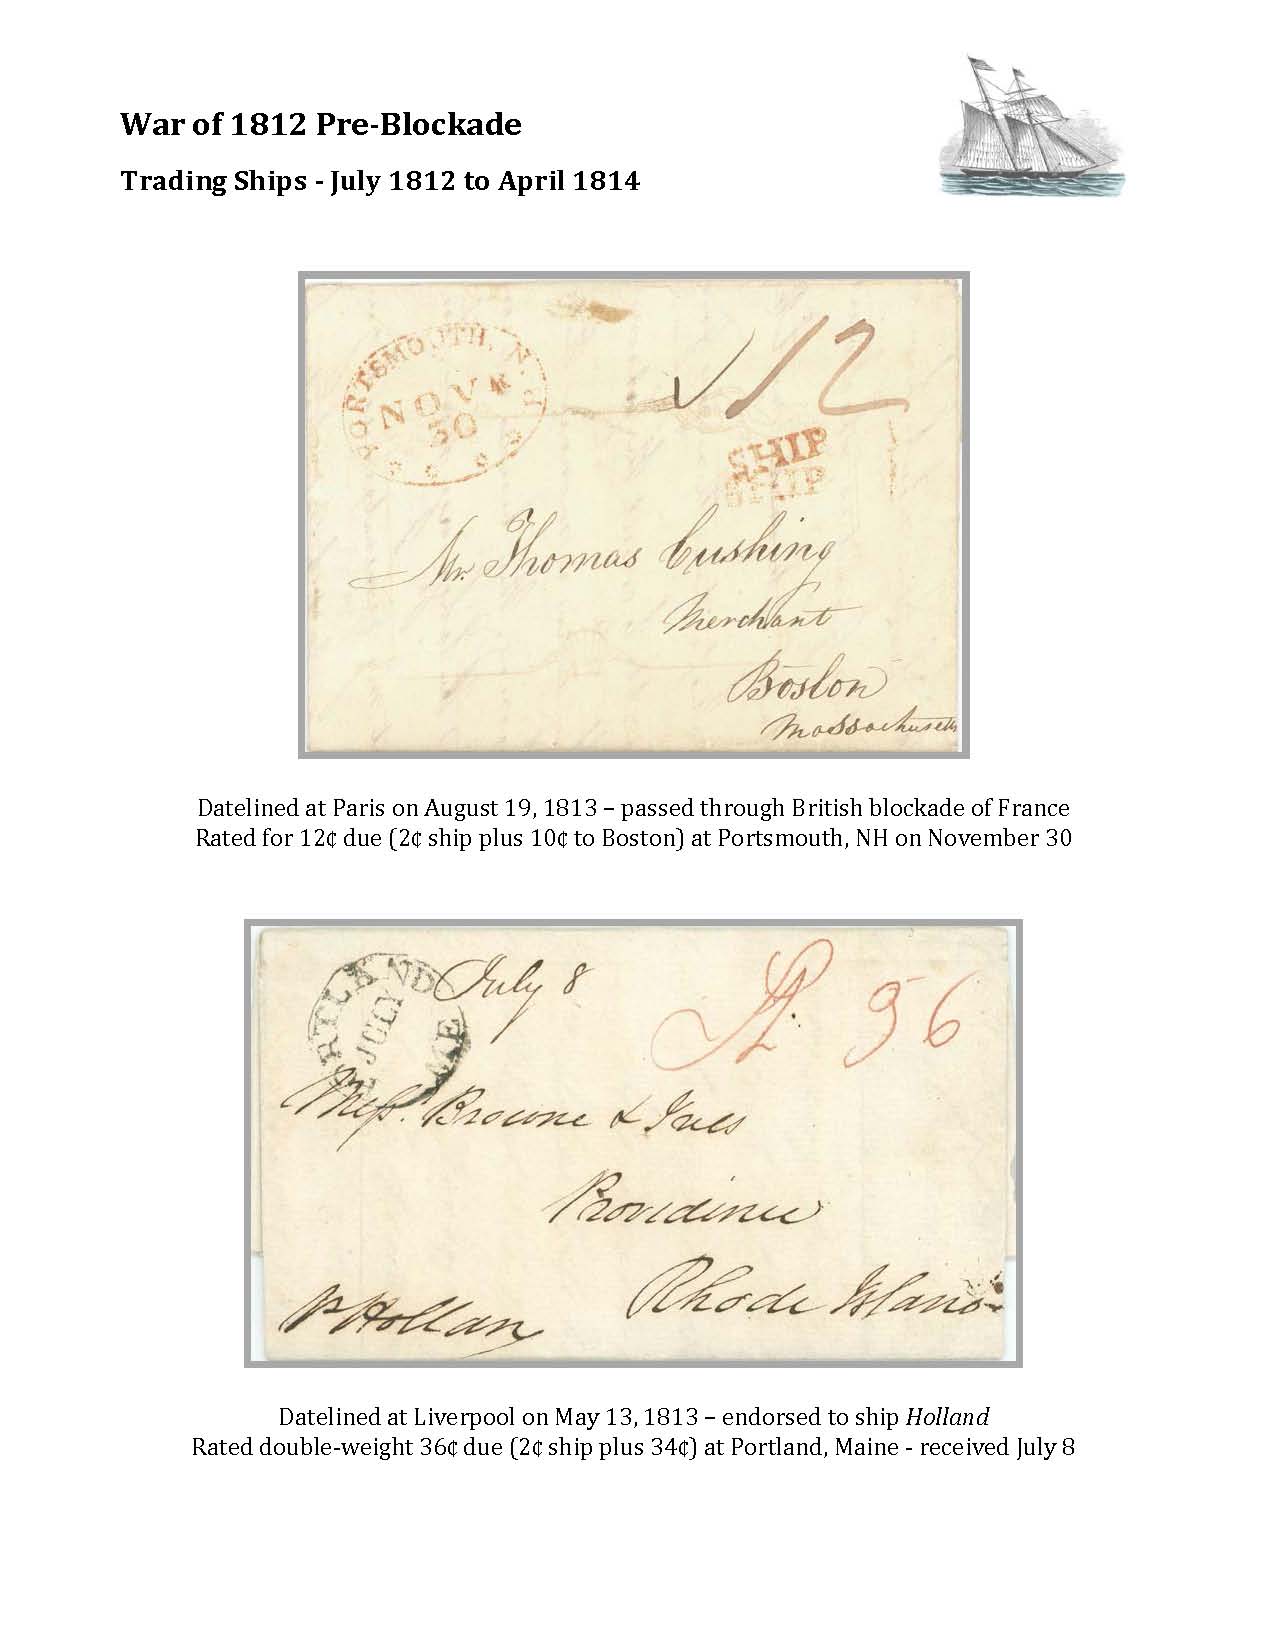 War of 1812 Pre-Blockade
Trading Ships - July 1812 to April 1814
PORTSMOUTH, N.
NOV
30
12
SHIP
SHIP
Mr. Thomas Cushing
Merchant
Boston
Massachusetts
Datelined at Paris on August 19, 1813 – passed through British blockade of France
Rated for 12¢ due (2¢ ship plus 10¢ to Boston) at Portsmouth, NH on November 30
RTLAND ME
JULY
July 8
36
Messrs. Browne & Ives
Providence
Rhode Island
P Hollan
Datelined at Liverpool on May 13, 1813 – endorsed to ship Holland
Rated double-weight 36¢ due (2¢ ship plus 34¢) at Portland, Maine - received July 8